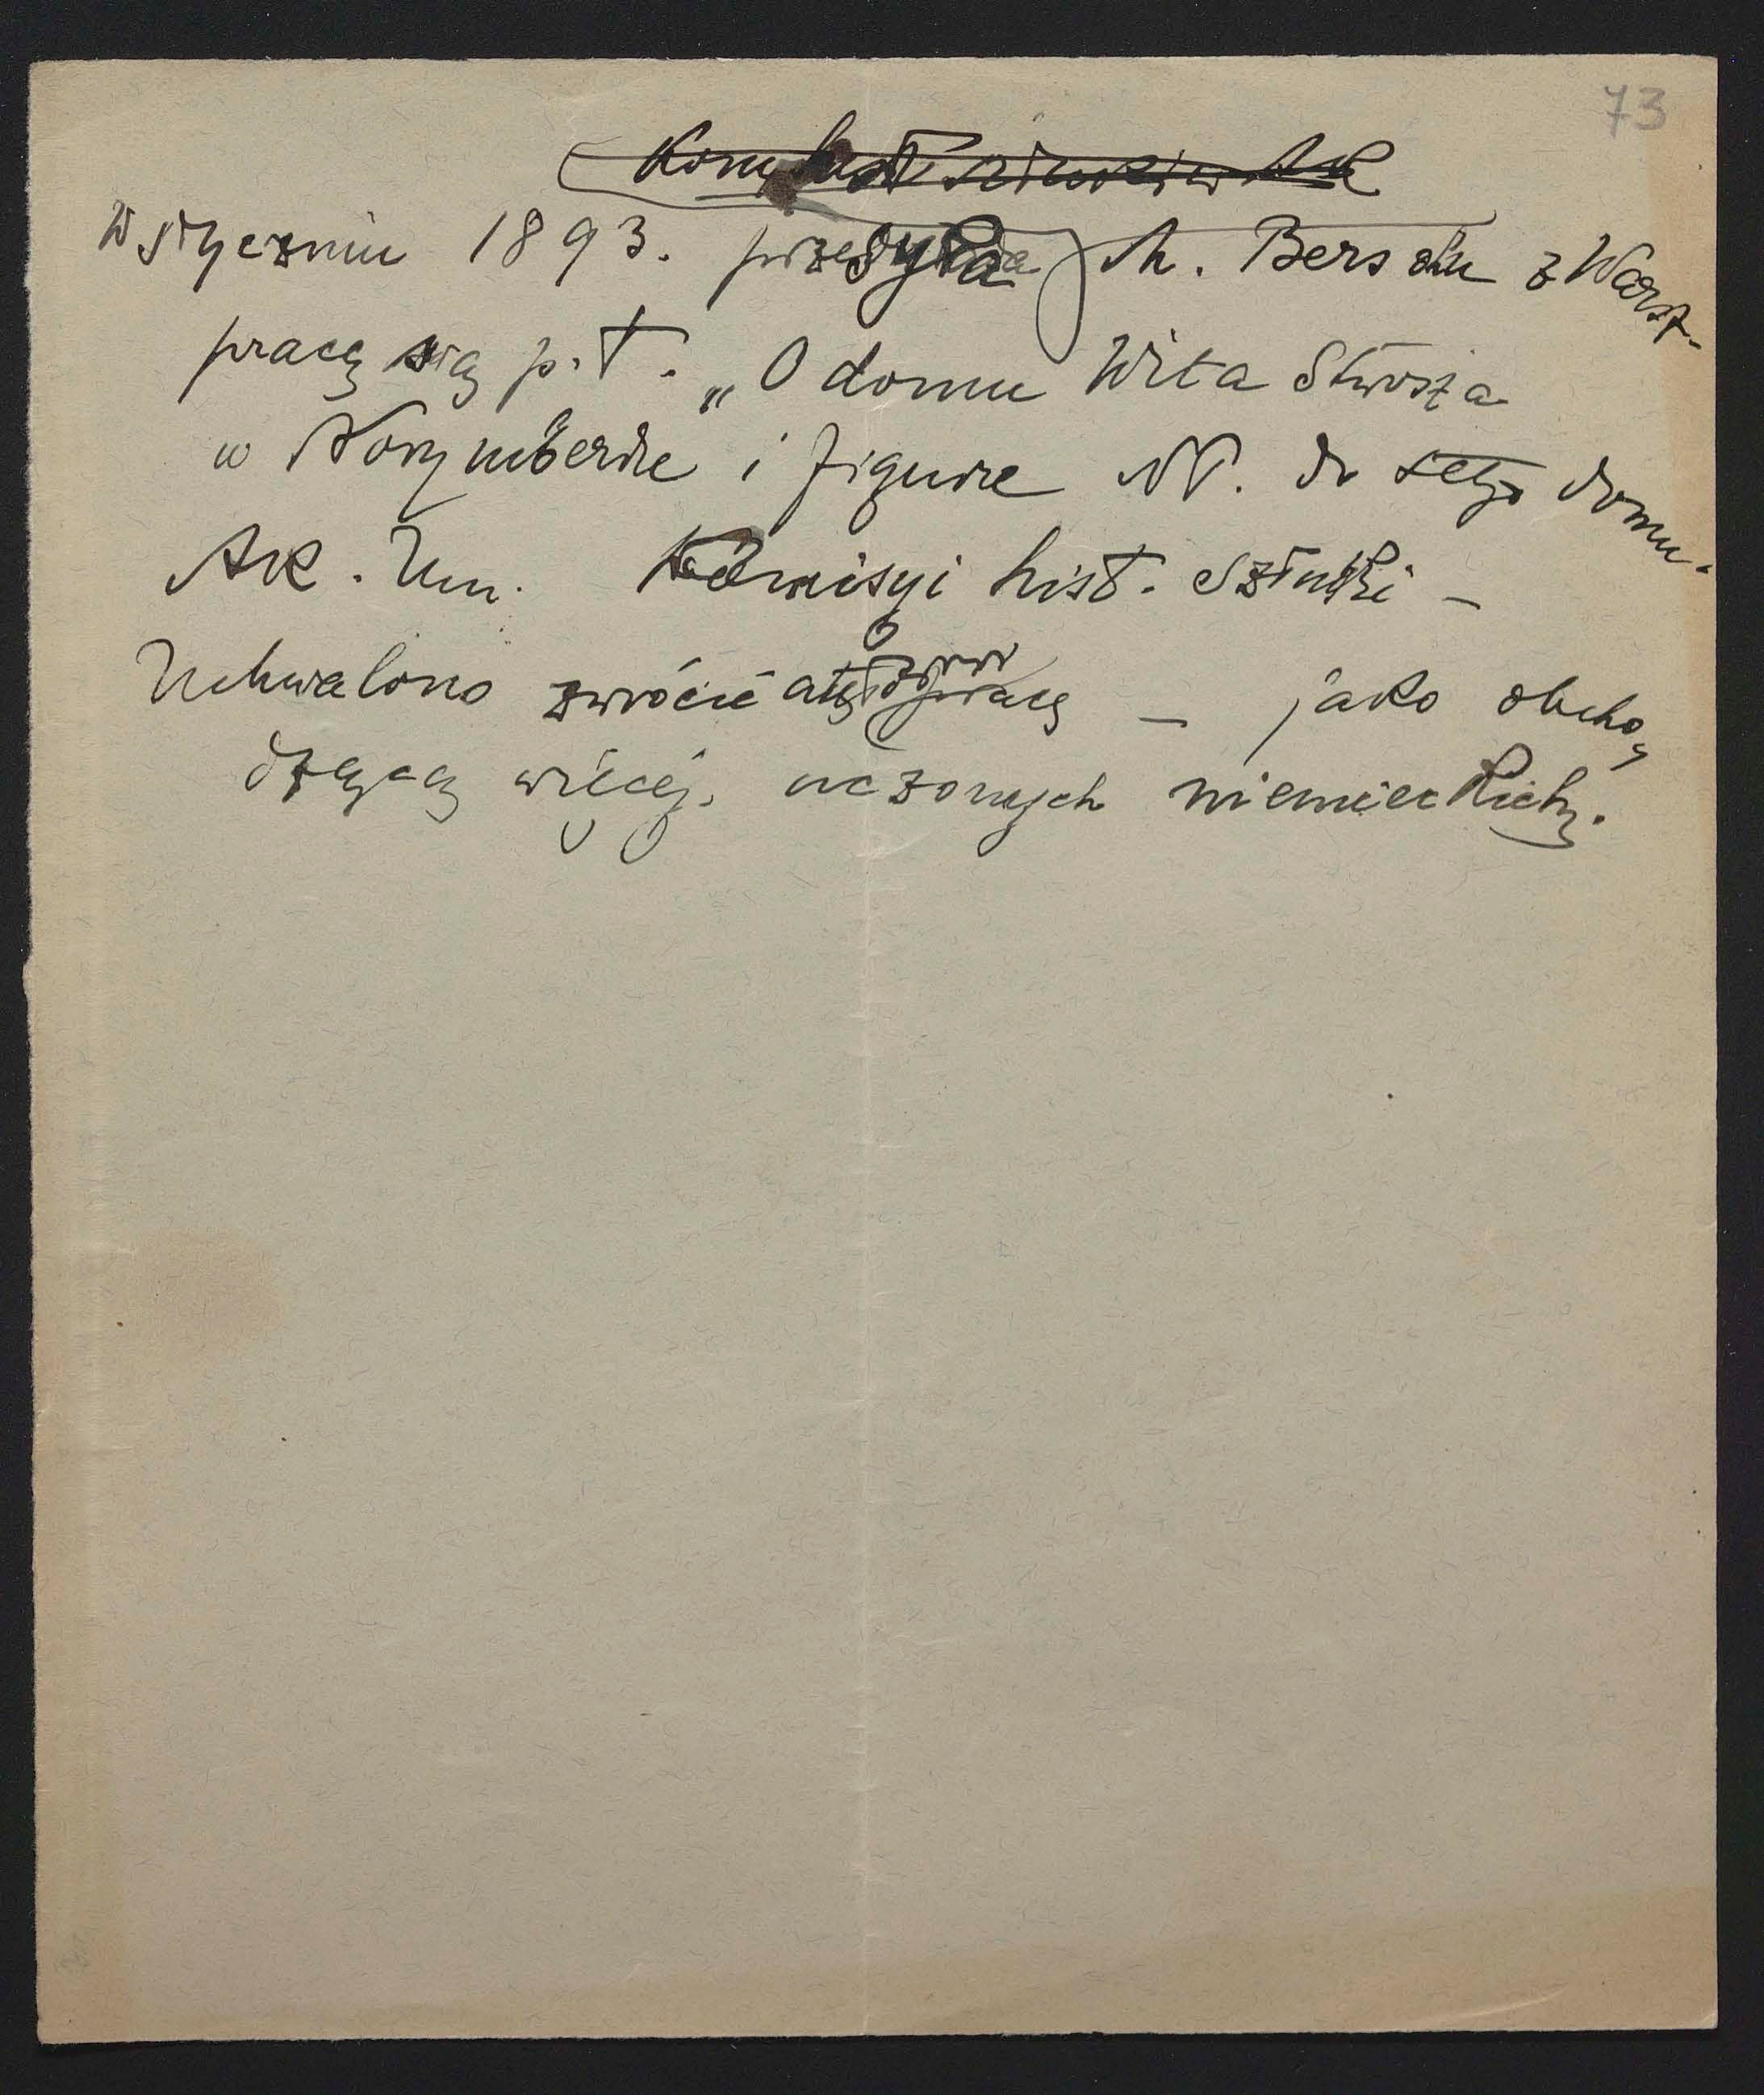 73
W styczniu 1893. przesyła M. Bersohn z Warsz-
pracę swą p. t. „O domu Wita Stwosza
w Norymberdze i figurze NP. do tego domu.
Ak. Um. Komisyi hist. Sztuki –
Uchwalono zwrócić pracę – jako obcho-
dzącą więcej uczonych niemieckich.